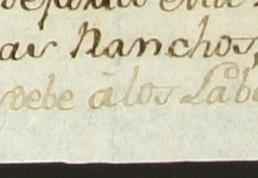 ar Ranchos,
debe à los Lab